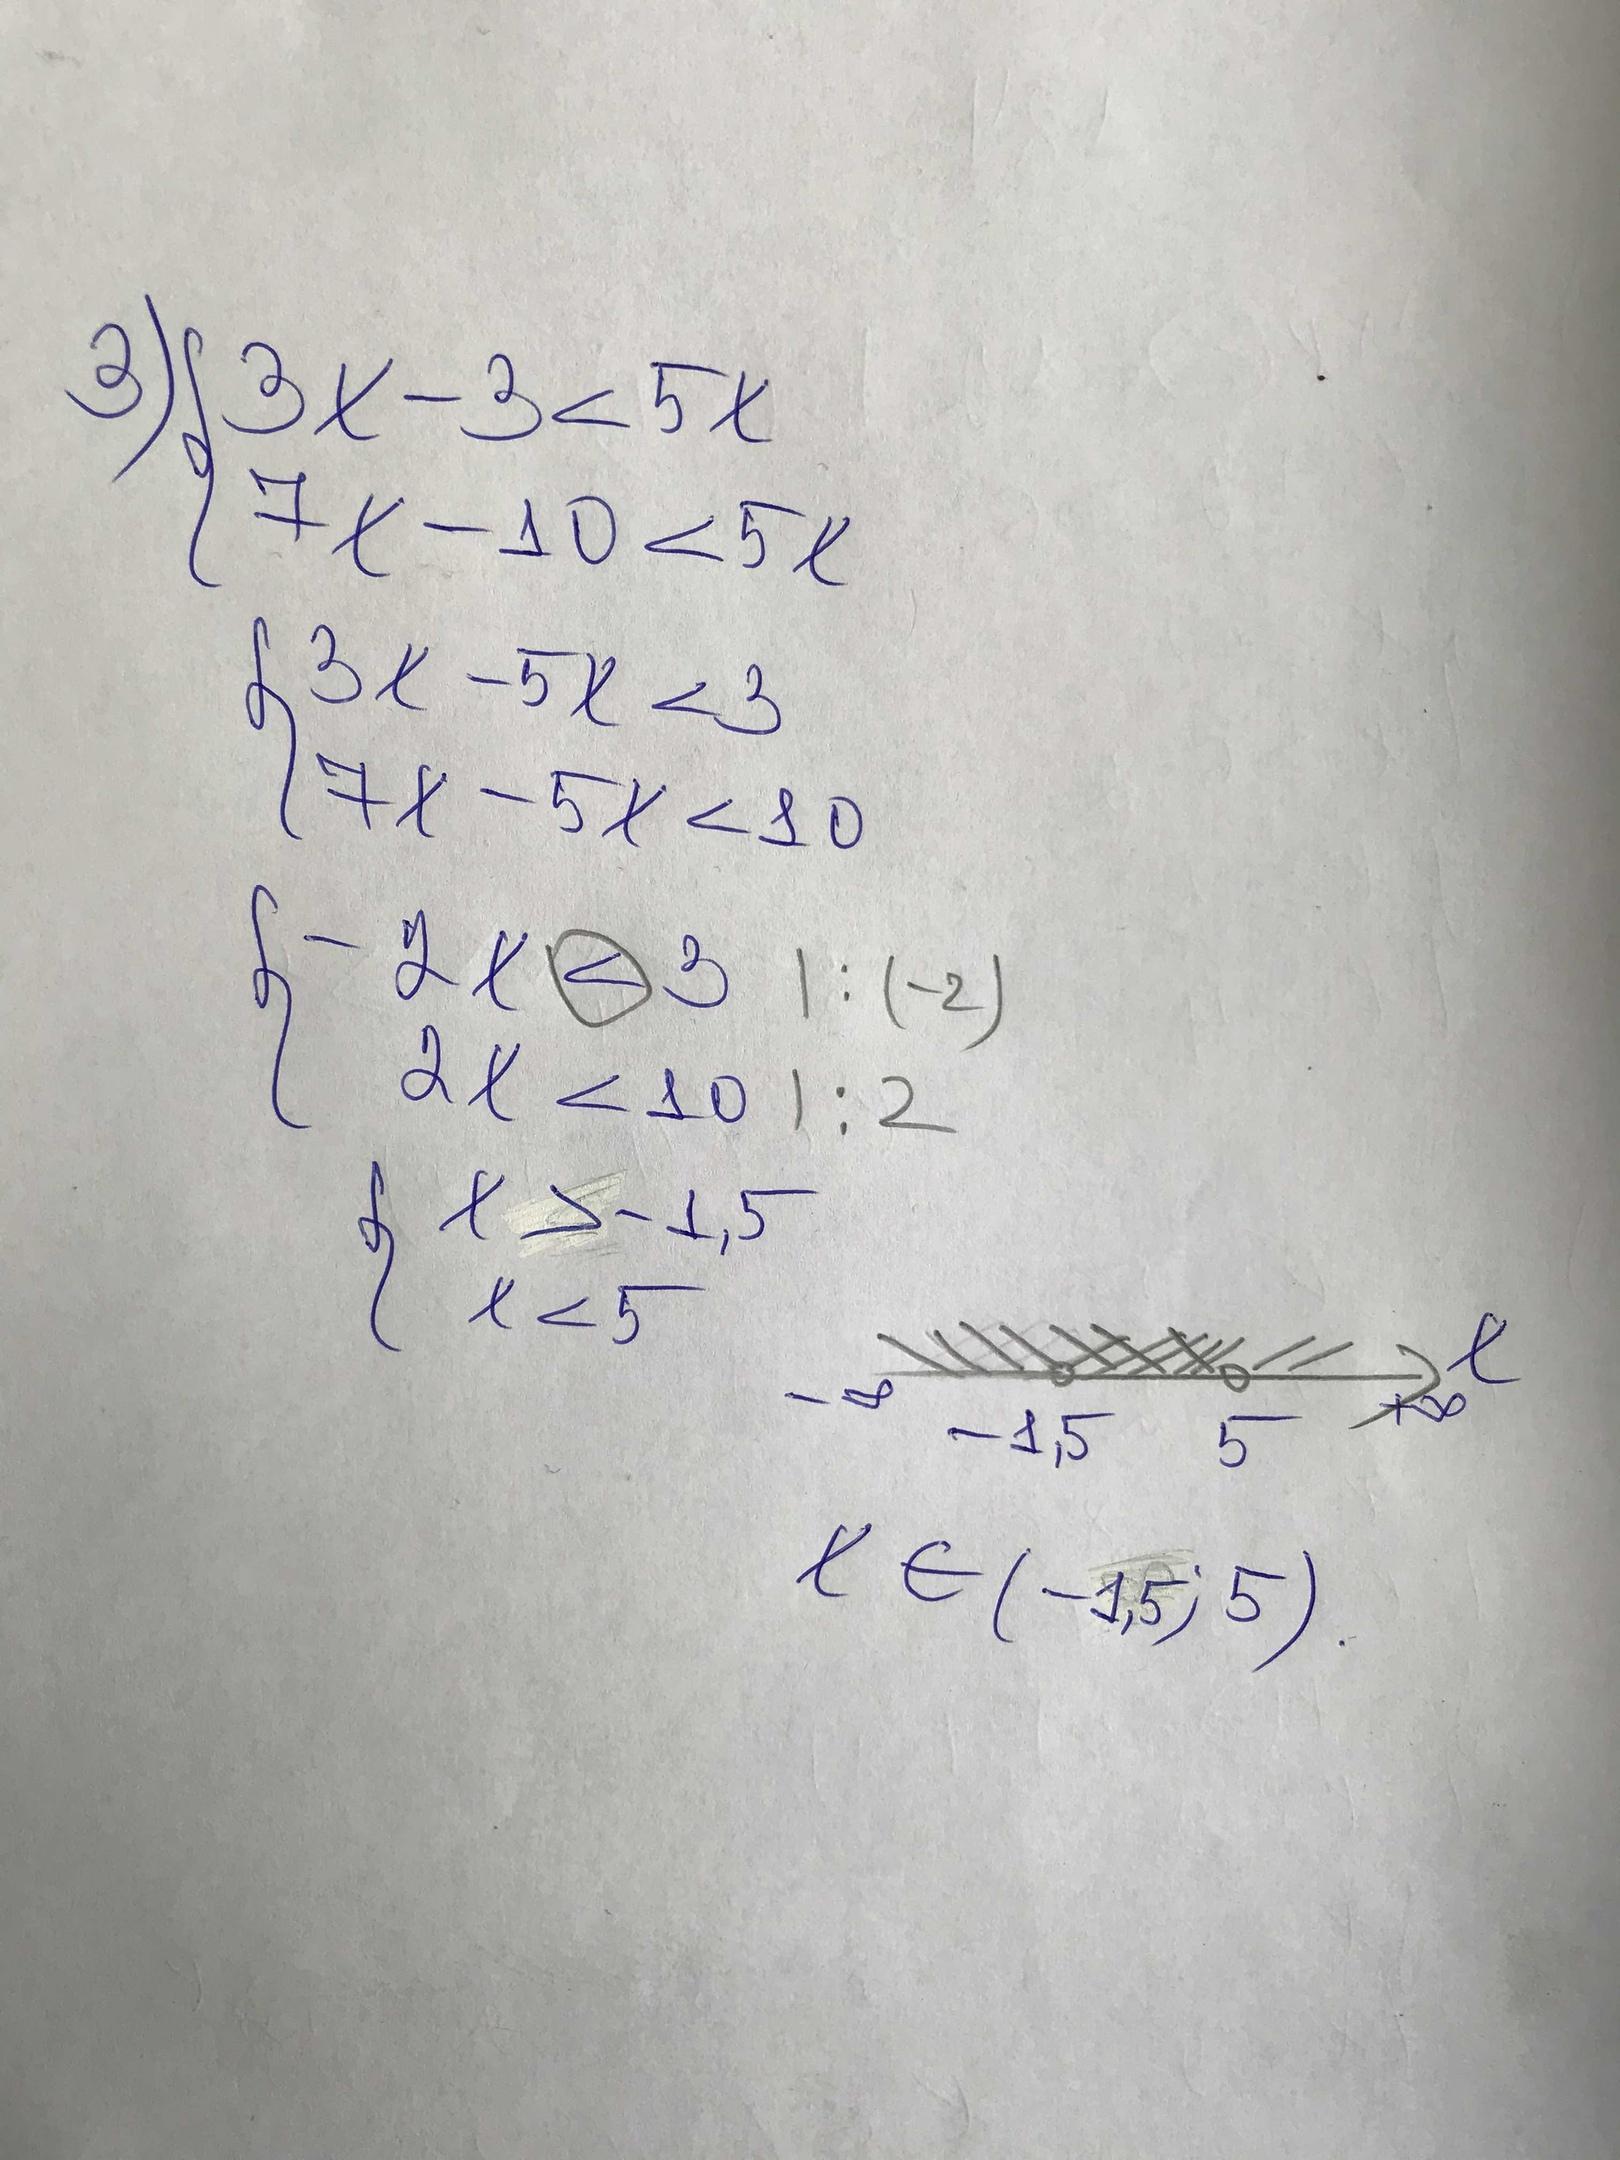 3) { 3x - 3 < 5x
7x - 10 < 5x
{ 3x - 5x < 3
7x - 5x < 10
{ - 2x < 3 | : (-2)
2x < 10 | : 2
{ x > - 1,5
x < 5
x
-∞ -1,5 5 +∞
x ∈ (-1,5; 5).